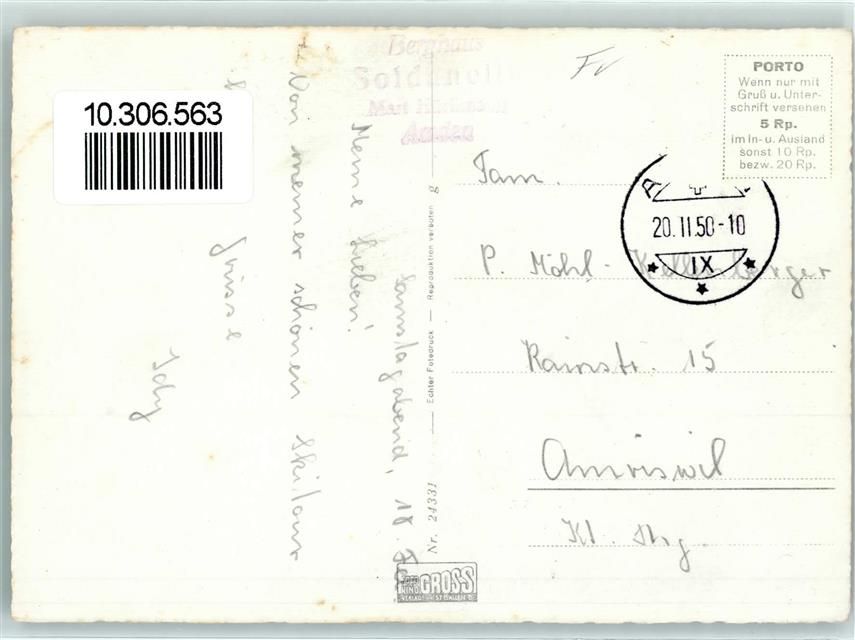 10.306.563
Berghaus
Soldanella
Amden
Samstagabend, 18. Fe
Meine Lieben!
Von meiner schönen Skitour
Grüsse
Idy
Nr. 24331 — Echter Fotodruck — Reproduktion verboten g
FOTO GROSS
Fam.
P. Möhl-Kellenberger
Rainstr. 15
Amriswil
Kt. Thrg.
20.II.50-10
IX
PORTO
Wenn nur mit
Gruß u. Unter-
schrift versehen
5 Rp.
im In- u. Ausland
sonst 10 Rp.
bezw. 20 Rp.